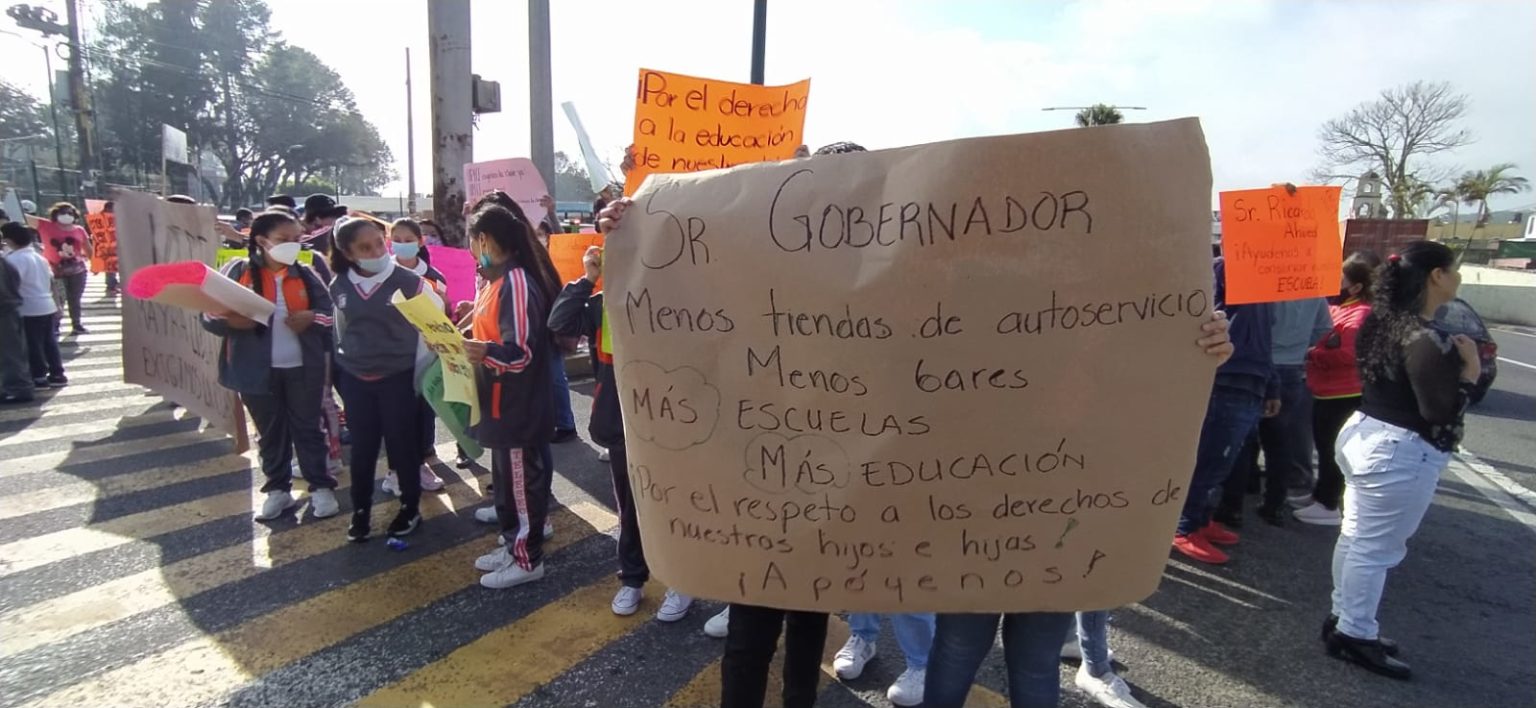 ¡Por el derecho
a la educación
de
SR. GOBERNADOR
Menos tiendas de autoservicio
Menos bares
MÁS ESCUELAS
MÁS EDUCACIÓN
¡Por el respeto a los derechos de
nuestros hijos e hijas!
¡Apóyenos!
Sr. Ricardo
Ahued
¡Ayudenos a
conservar
ESCUELA!
EXIGIMOS
TELESEC